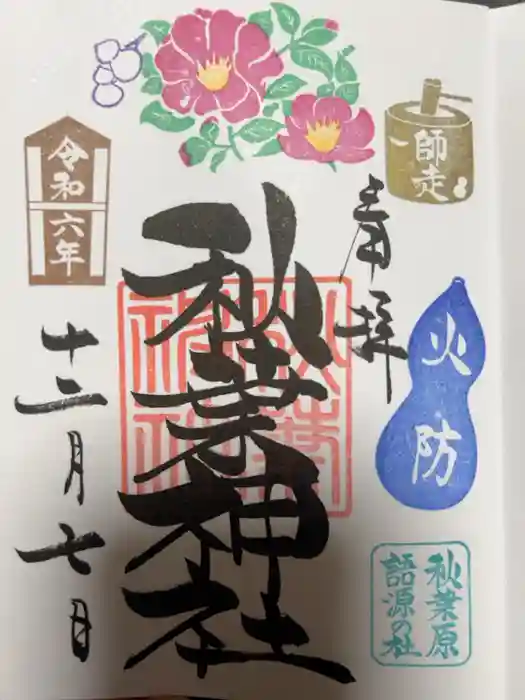 師走
奉拝
火・防
秋葉原
語源の社
秋葉神社
令和
六年
十二月七日